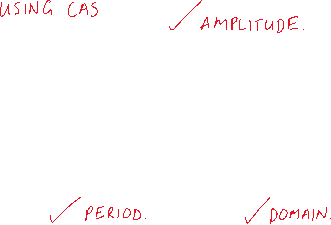 USING CAS
✓ AMPLITUDE.
✓ PERIOD.
✓ DOMAIN.